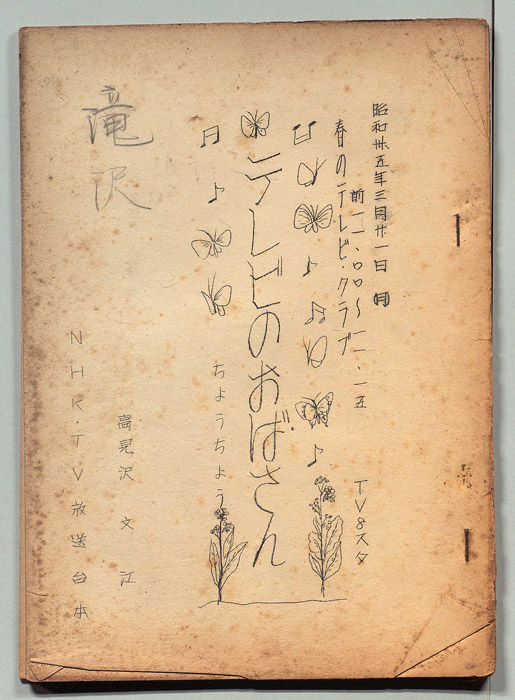 昭和卅五年三月廿一日㈪
前一一、〇〇〜一一・一五
春のテレビ・クラブ
TV8スタ
テレビのおばさん
ちょうちょう
高見沢文江
NHK・TV放送台本
滝沢